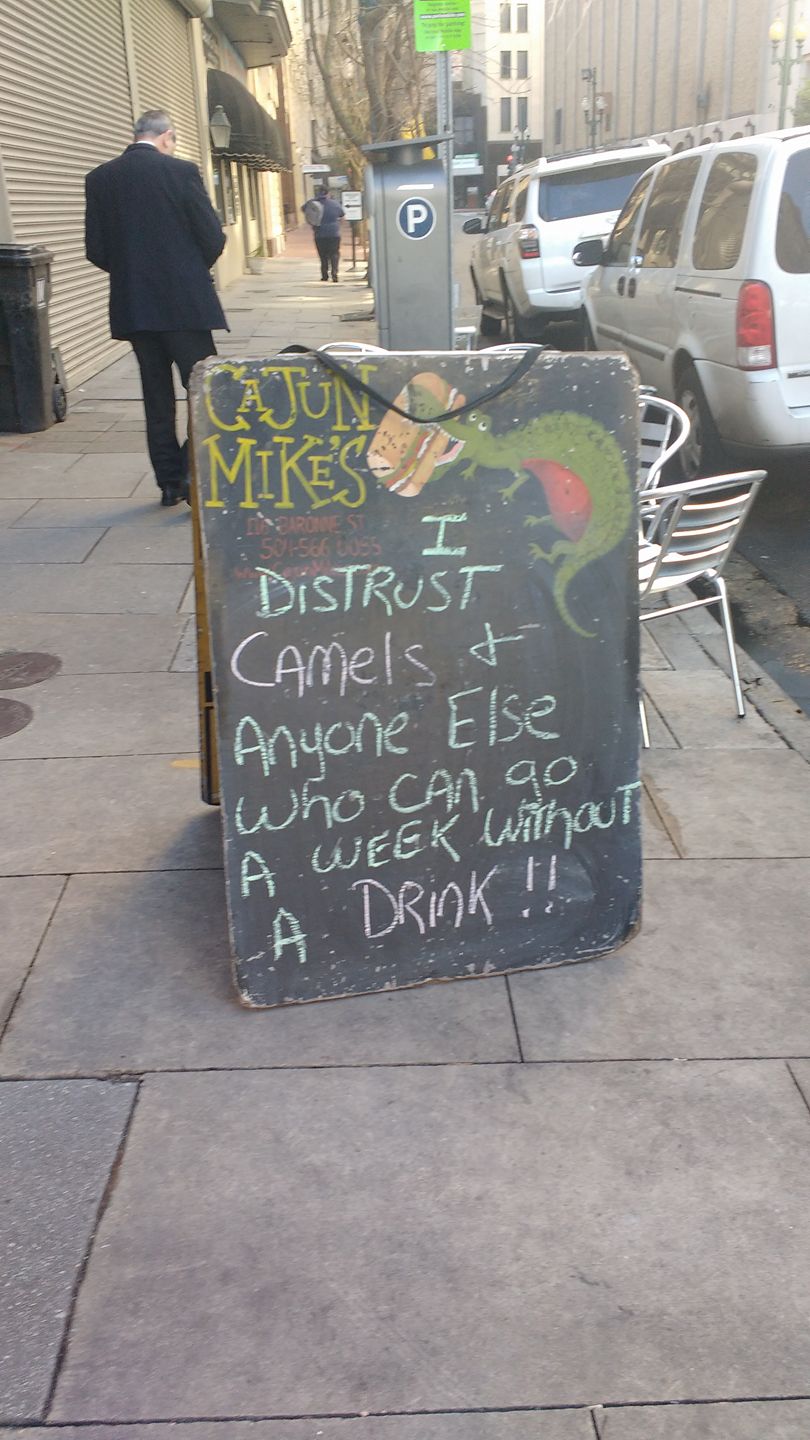 P
CAJUN
MIKE'S
BARONNE ST
I
DISTRUST
CAMELS &
ANYONE ELSE
WHO CAN gO
A WEEK WITHOUT
A DRINK !!